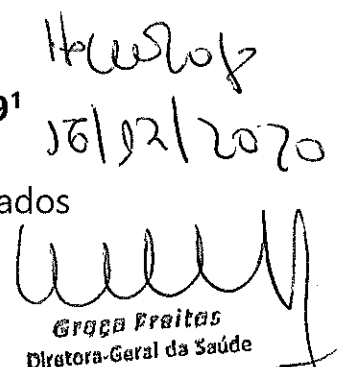 Homologo
9¹
16/12/2020
ados
Graça Freitas
Diretora-Geral da Saúde